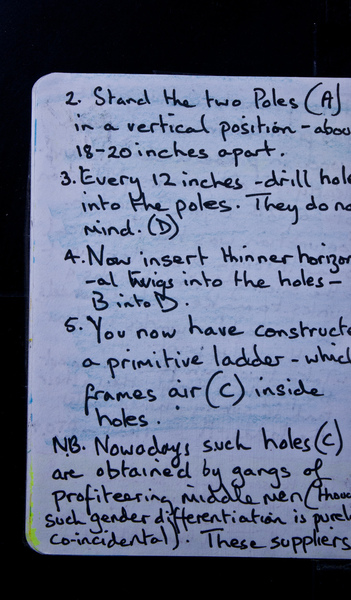 2. Stand the two Poles (A)
in a vertical position - abou
18-20 inches apart.
3. Every 12 inches - drill hole
into the poles. They do no
mind. (D)
4. Now insert thinner horizon
-al twigs into the holes -
B into D.
5. You now have constructe
a primitive ladder - which
frames air (C) inside
holes.
NB. Nowadays such holes (C)
are obtained by gangs of
profitearing middle men (thoug
such gender differentiation is purel
co-incidental). These suppliers